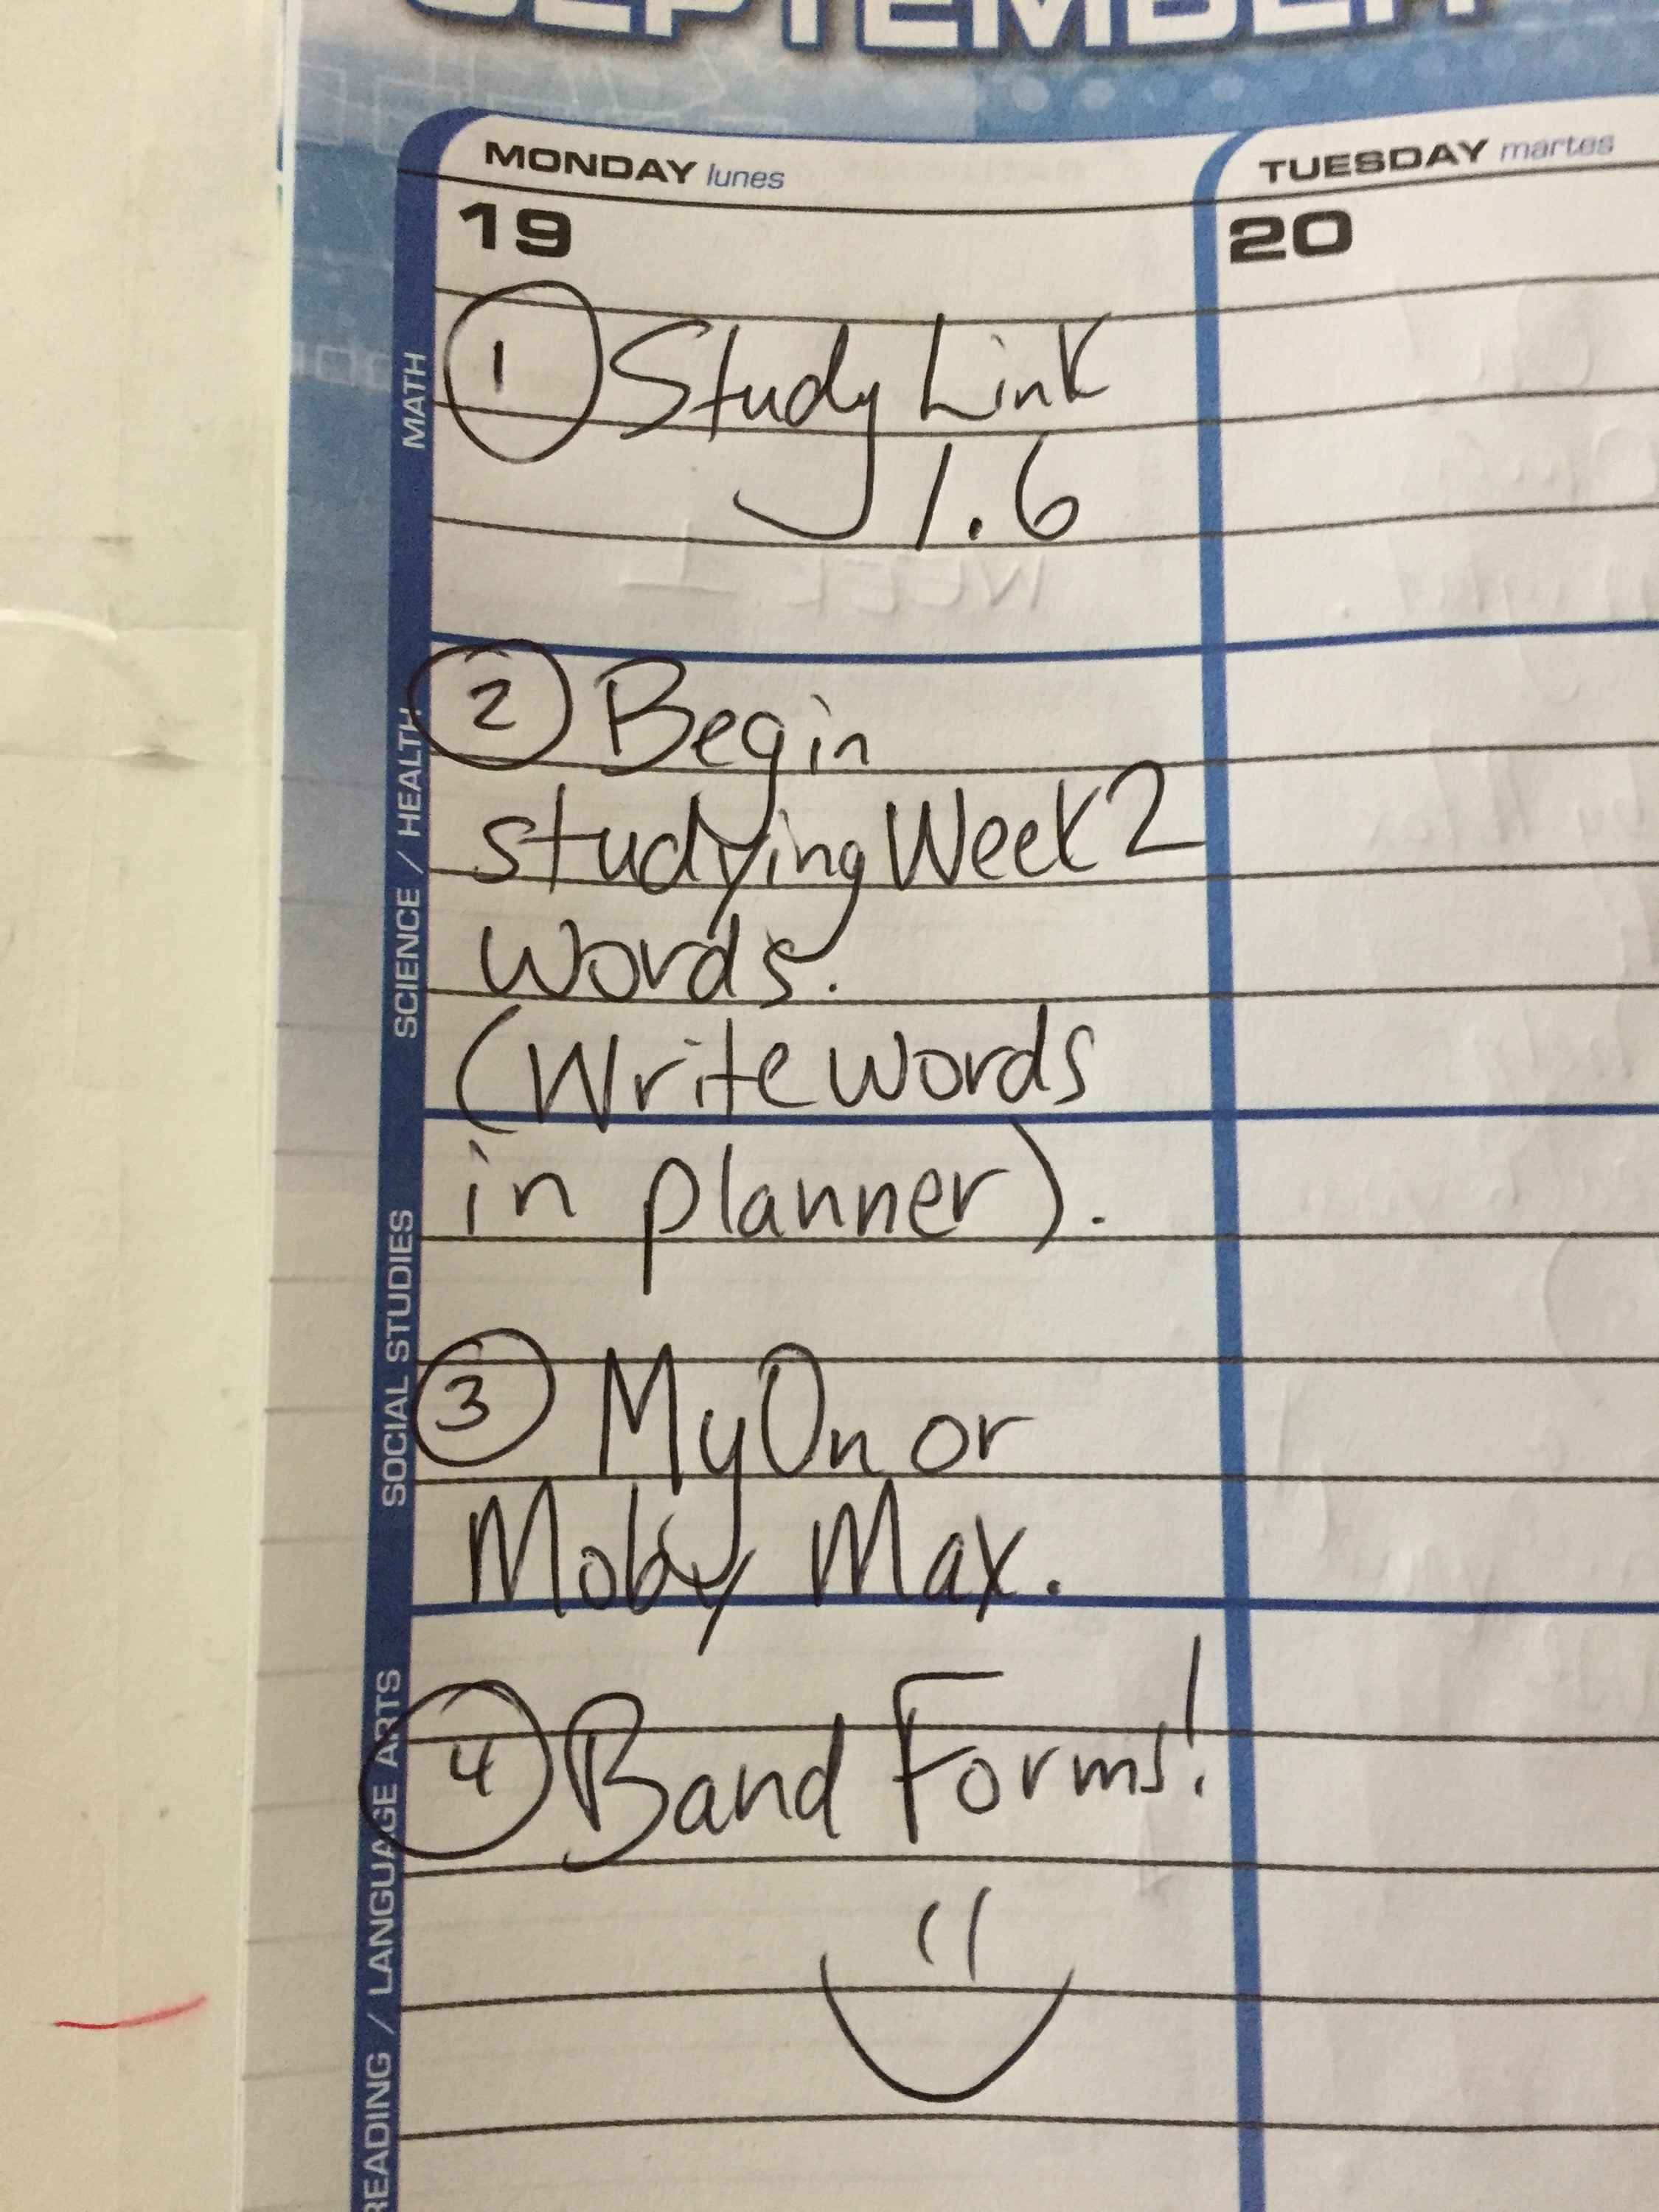 SEPTEMBER
MONDAY lunes
TUESDAY martes
19
20
MATH
① Study Link
1.6
SCIENCE / HEALTH
② Begin
studying Week 2
words.
(Write words
in planner).
SOCIAL STUDIES
③ MyOn or
Moby Max.
READING / LANGUAGE ARTS
④ Band Forms!